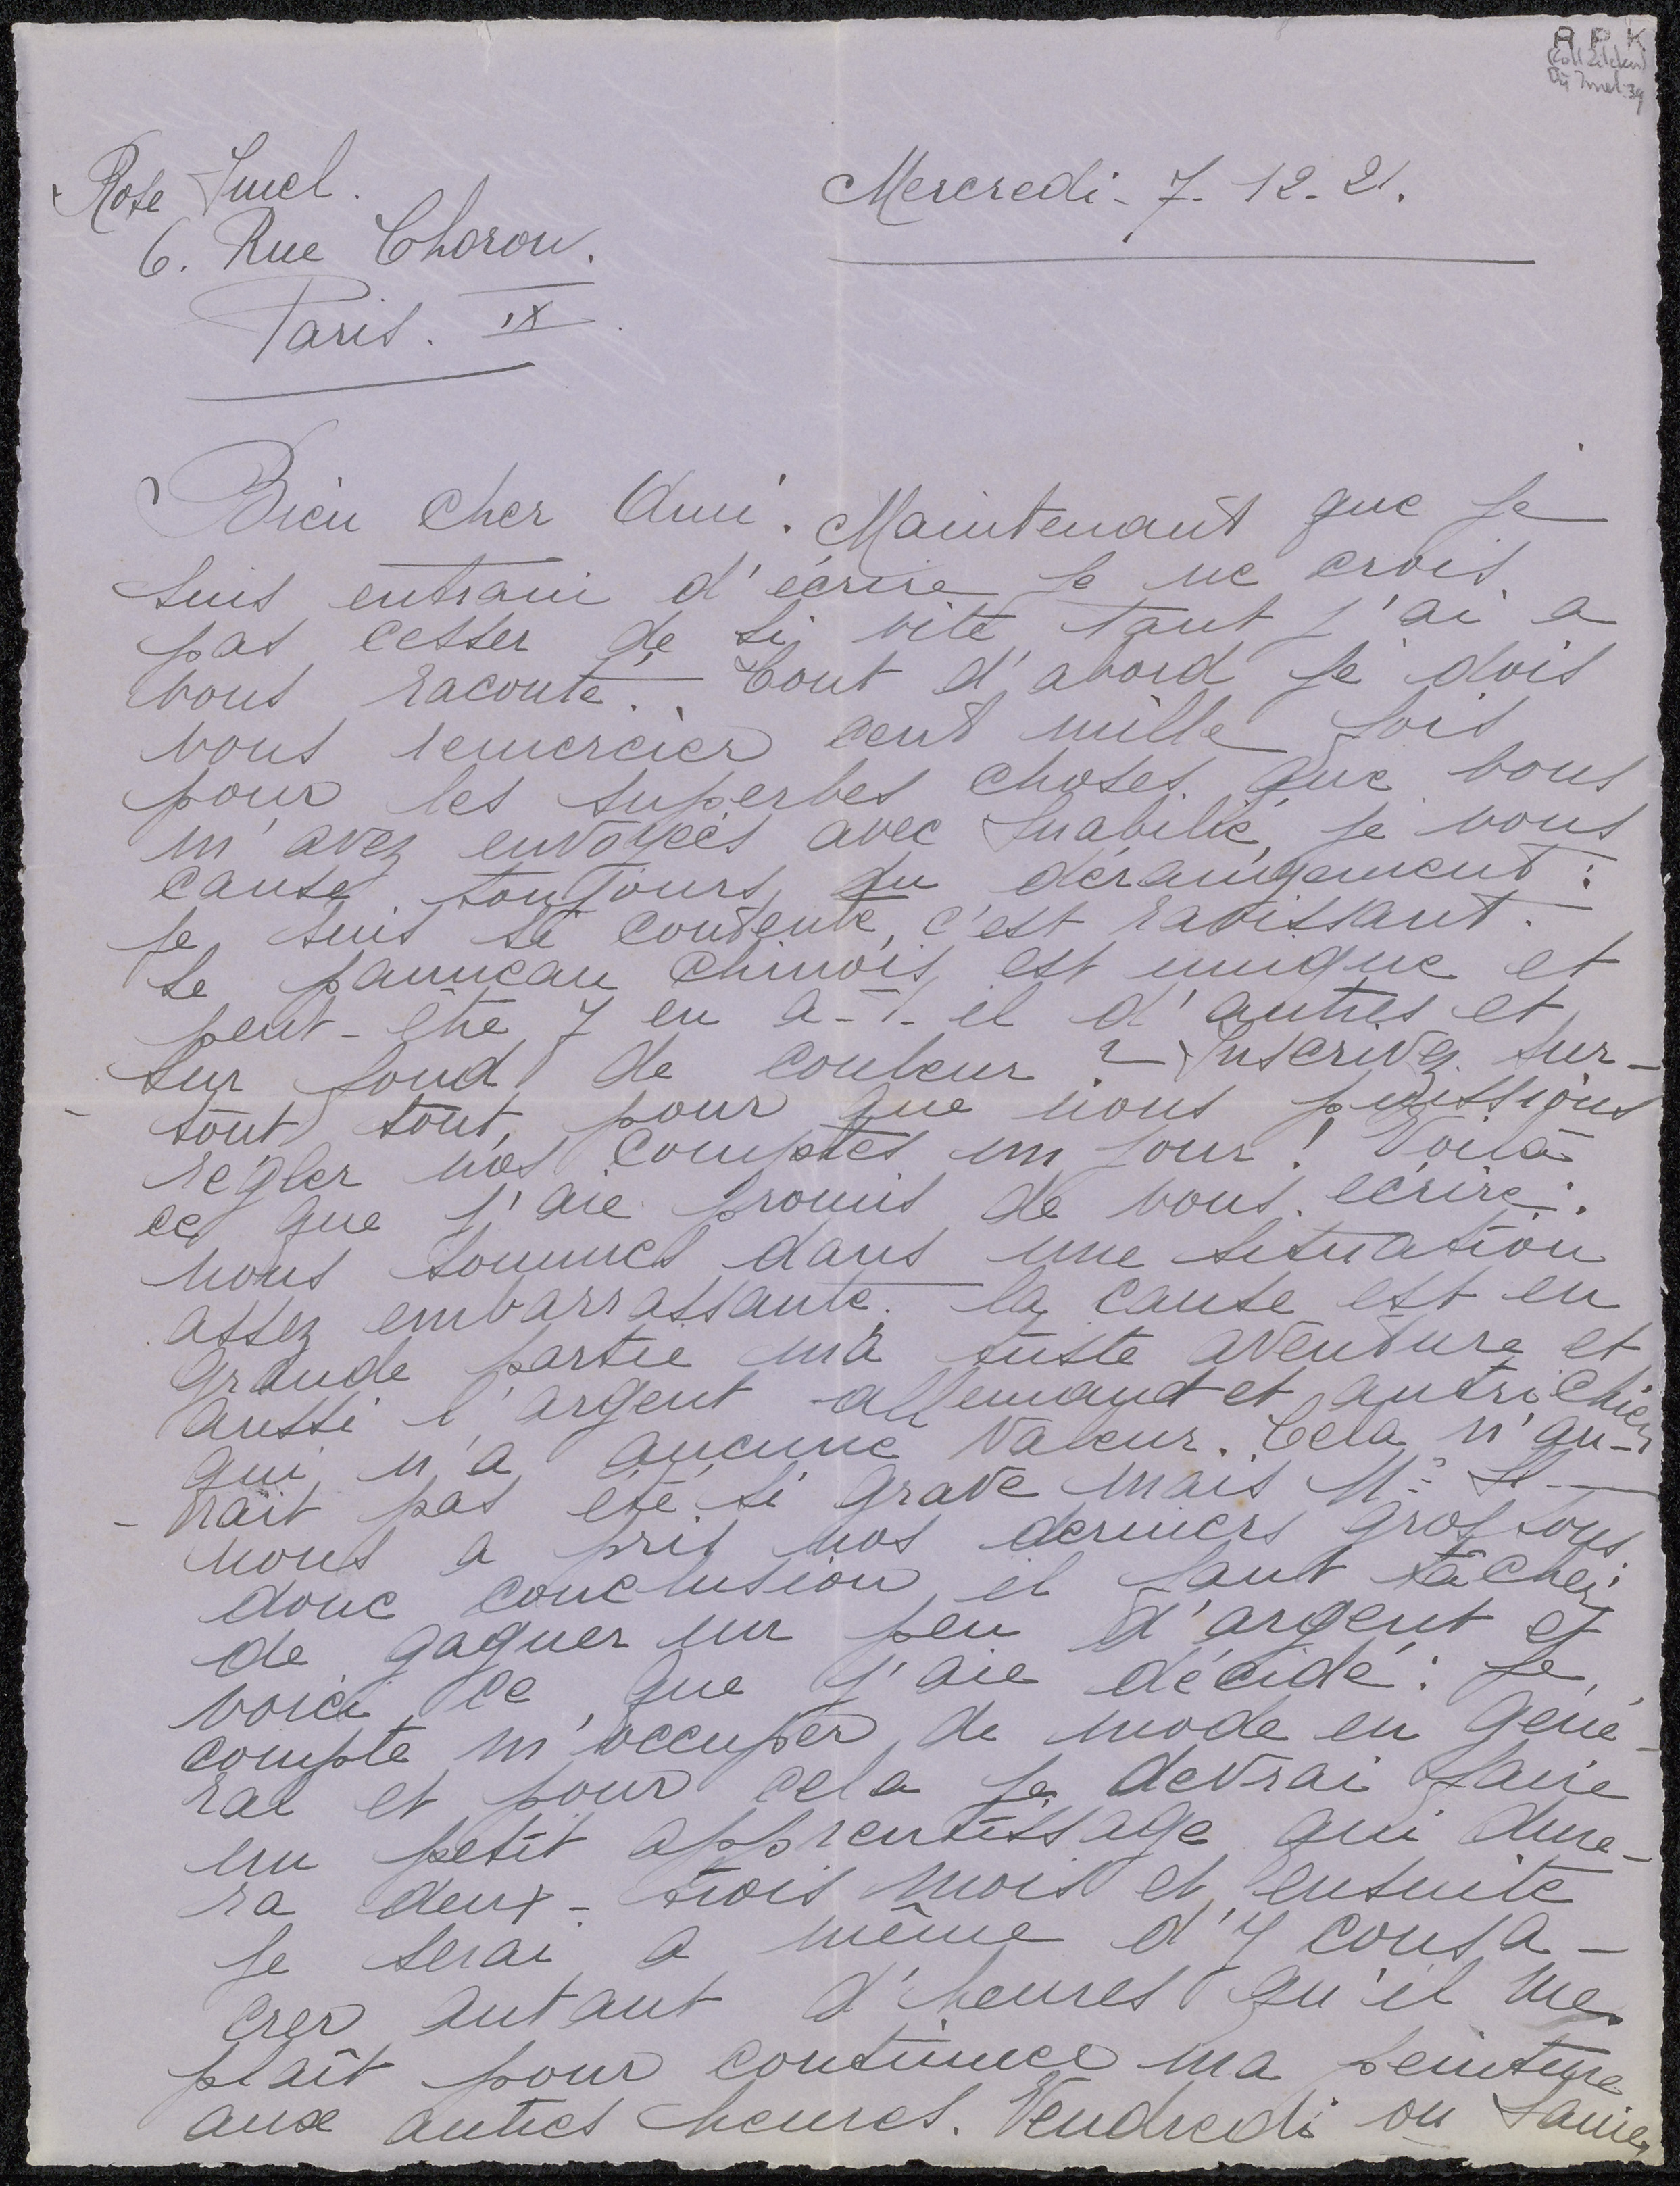 R P K
Rose Imel.
6. Rue Choron.
Paris. IX.
Mercredi - 7. 12 - 21.
Bien cher Ami. Maintenant que je
suis entraini d'écrire je ne crois
pas cesser de si vite tant j'ai a
vous raconte. - Tout d'abord je dois
vous remercier cent mille fois
pour les superbes choses que vous
m'avez envoyées avec je vous
cause toujours du dérangement :
je suis si contente, c'est ravissant.
Le panneau chinois est unique et
peut-être y en a-t-il d'autres et
sur fond de couleur ? - Inscrivez sur-
tout tout, pour que nous puissions
régler nos comptes un jour ! Voilà
ce que j'aie promis de vous écrire :
nous sommes dans une situation
assez embarrassante. La cause est en
grande partie ma triste aventure et
aussi l'argent allemand et autrichien
qui n'a aucune valeur. Cela n'au-
rait pas été si grave mais Mr
nous a pris nos derniers gros sous
donc conclusion il faut tâcher
de gagner un peu d'argent et
voici ce que j'aie décidé : je
compte m'occuper de mode en géné-
ral et pour cela je devrai faire
un petit apprentissage qui dure-
ra deux - trois mois et ensuite
je serai a même d'y consa-
crer autant d'heures qu'il me
plaît pour continuer ma peinture
aux autres heures. Vendredi ou